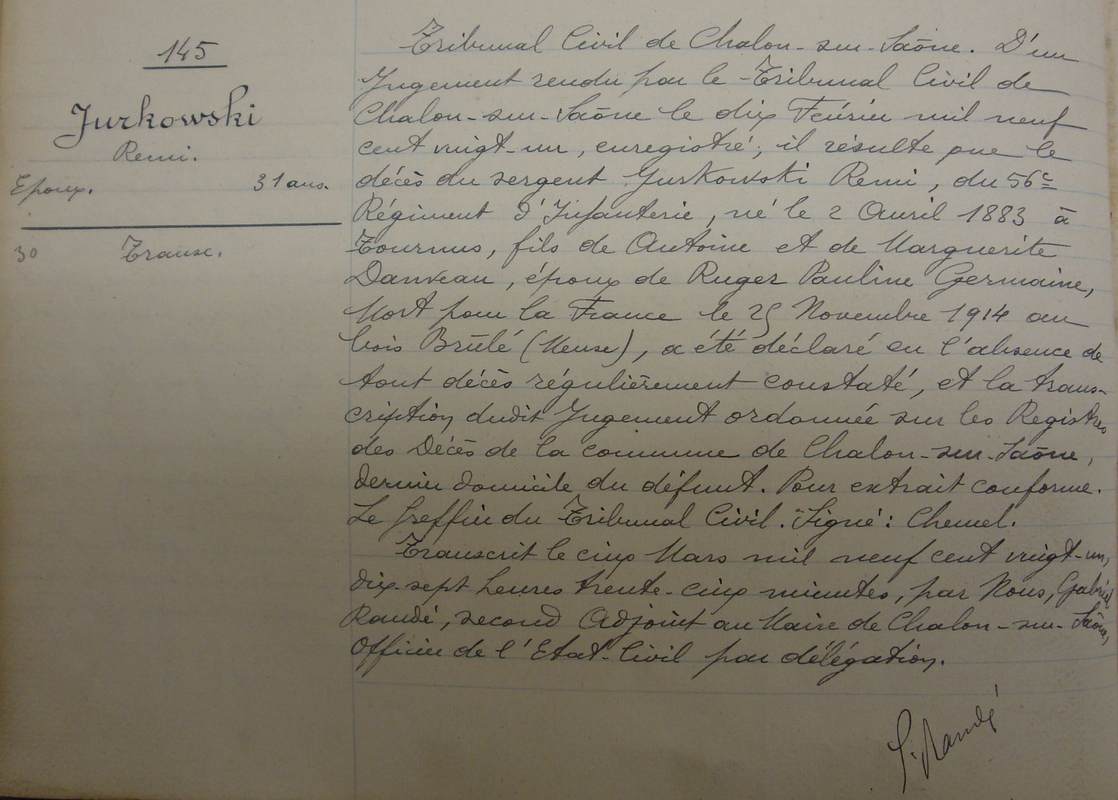 145
Jurkowski
Remi.
Epoux. 31 ans.
30 Transc.
Tribunal Civil de Chalon-sur-Saône. D'un
Jugement rendu par le Tribunal Civil de
Chalon-sur-Saône le dix Février mil neuf
cent vingt-un, enregistré; il résulte que le
décès du sergent Jurkowski Remi, du 56e
Régiment d'Infanterie, né le 2 Avril 1883 à
Tournus, fils de Antoine et de Marguerite
Danveau, époux de Ruger Pauline Germaine,
Mort pour la France le 25 Novembre 1914 au
bois Brûlé (Meuse), a été déclaré en l'absence de
tout décès régulièrement constaté, et la trans-
cription dudit Jugement ordonnée sur les Registres
des Décès de la commune de Chalon-sur-Saône,
dernier domicile du défunt. Pour extrait conforme.
Le Greffier du Tribunal Civil. Signé: Chemel.
Transcrit le cinq Mars mil neuf cent vingt-un,
dix-sept heures trente-cinq minutes, par Nous, Gabriel
Randé, second Adjoint au Maire de Chalon-sur-Saône,
Officier de l'Etat-Civil par délégation.
G. Randé